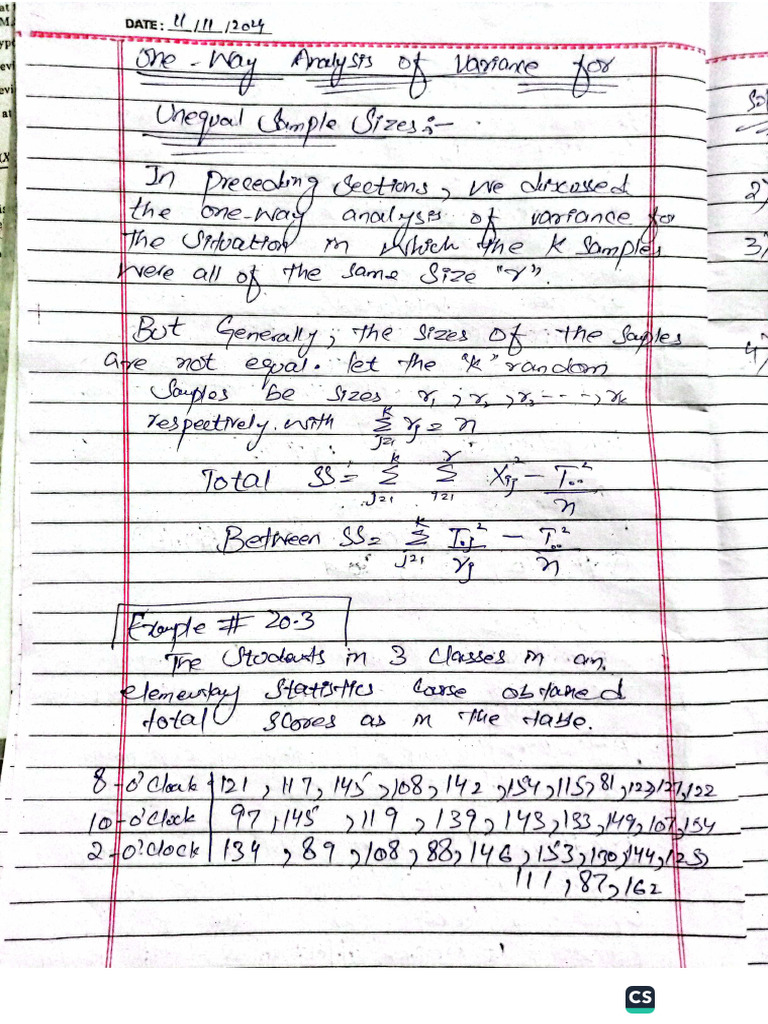 DATE: 11/11/2024
One-Way Analysis of Variance for
Unequal Sample Sizes:-
In preceding sections, we discussed
the one-way analysis of variance for
the situation in which the K samples
were all of the same size "r".
But Generally, the sizes of the saples
are not equal. let the "k" random
samples be sizes r₁, r₂, r₃ ----, rₖ
respectively. with Σ rⱼ = n
k
j=1
Total SS = Σ Σ Xᵢⱼ² - T..²/n
k r
j=1 i=1
Between SS = Σ T.ⱼ²/rⱼ - T..²/n
k
j=1
Example # 20.3
The Students in 3 classes in an
elementary statistics corse obtained
total scores as in the table.
8-o'Clock | 121, 117, 145, 108, 142, 154, 115, 81, 123, 127, 122
10-o'Clock | 97, 145, 119, 139, 143, 133, 149, 107, 154
2-o'Clock | 134, 89, 108, 88, 146, 153, 130, 144, 125,
111, 87, 162
CS